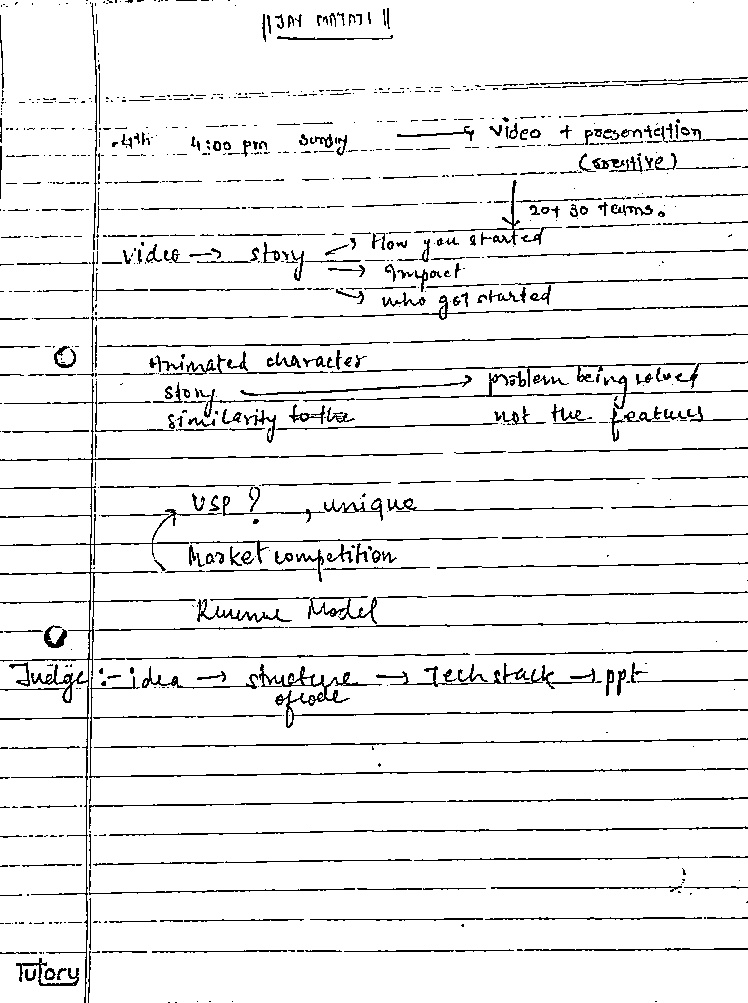 || JAY MATAJI ||
4th 4:00 pm Sunday → video + presentation
(creative)
20+ 30 teams.
video → story → How you started
→ Impact
→ who got started
Animated character
story → problem being solved
similarity to the not the features
USP ? , unique
Market competition
Revenue Model
Judge :- idea → structure → Tech stack → ppt
of code
Tutory